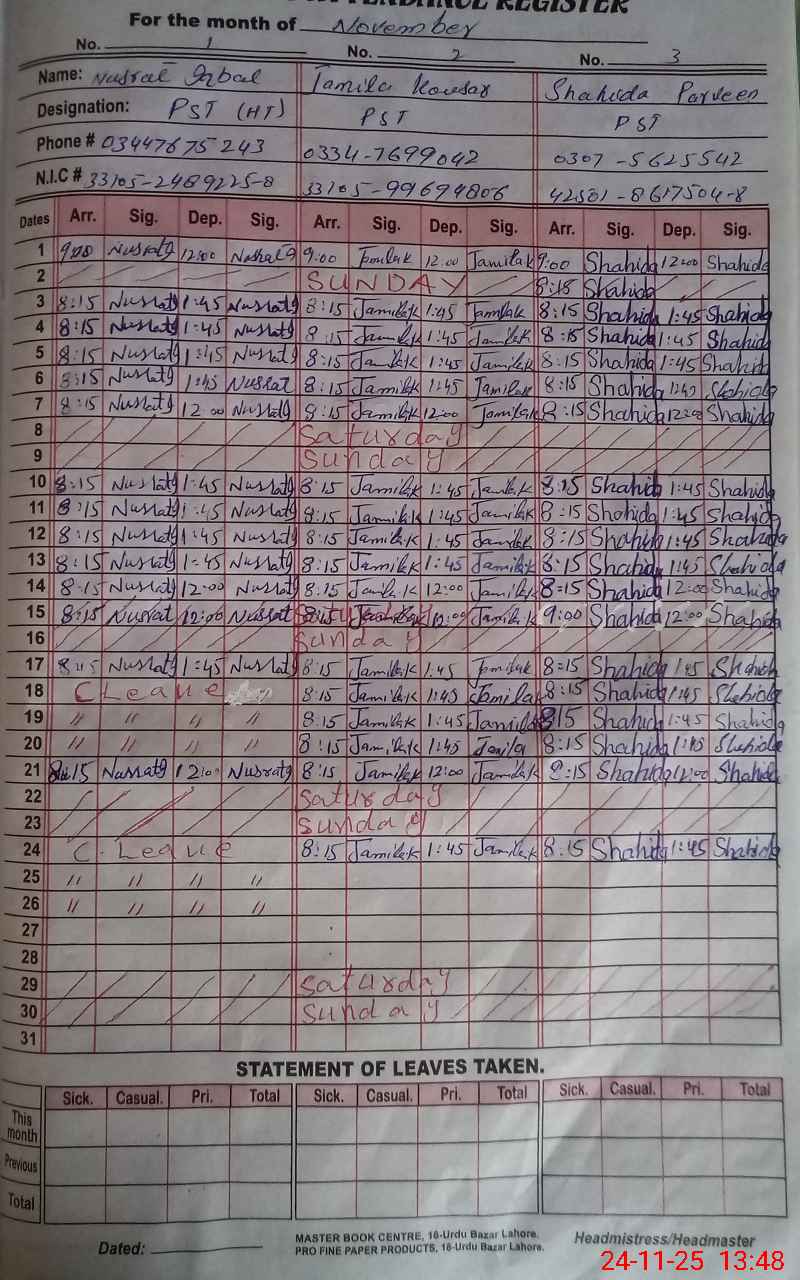 ATTENDANCE REGISTER
For the month of November
No. 1 No. 2 No. 3
Name: Nusrat Iqbal Jamila Kousar Shahida Parveen
Designation: PST (HT) PST PST
Phone # 03447675243 0334-7699042 0307-5625542
N.I.C # 33105-2489225-8 33105-99694806 42501-8617504-8
Dates Arr. Sig. Dep. Sig. Arr. Sig. Dep. Sig. Arr. Sig. Dep. Sig.
1 9:00 Nusratg 12:00 Nusratg 9:00 Jamilak 12:00 Jamilak 9:00 Shahida 12:00 Shahida
2 SUNDAY 8:15 Shahida
3 8:15 Nusratg 1:45 Nusratg 8:15 Jamilak 1:45 Jamilak 8:15 Shahida 1:45 Shahida
4 8:15 Nusratg 1:45 Nusratg 8:15 Jamilak 1:45 Jamilak 8:15 Shahida 1:45 Shahida
5 8:15 Nusratg 1:45 Nusratg 8:15 Jamilak 1:45 Jamilak 8:15 Shahida 1:45 Shahida
6 8:15 Nusratg 1:45 Nusrat 8:15 Jamilak 1:45 Jamilak 8:15 Shahida 1:45 Shahida
7 8:15 Nusratg 12:00 Nusratg 8:15 Jamilak 12:00 Jamilak 8:15 Shahida 12:00 Shahida
8 Saturday
9 Sunday
10 8:15 Nusratg 1:45 Nusratg 8:15 Jamilak 1:45 Jamilak 8:15 Shahida 1:45 Shahida
11 8:15 Nusratg 1:45 Nusratg 8:15 Jamilak 1:45 Jamilak 8:15 Shahida 1:45 Shahida
12 8:15 Nusratg 1:45 Nusratg 8:15 Jamilak 1:45 Jamilak 8:15 Shahida 1:45 Shahida
13 8:15 Nusratg 1:45 Nusratg 8:15 Jamilak 1:45 Jamilak 8:15 Shahida 1:45 Shahida
14 8:15 Nusratg 12:00 Nusratg 8:15 Jamilak 12:00 Jamilak 8:15 Shahida 12:00 Shahida
15 8:15 Nusrat 12:00 Nusrat 8:15 12:00 Jamilak 9:00 Shahida 12:00 Shahida
16 Sunday
17 8:15 Nusratg 1:45 Nusratg 8:15 Jamilak 1:45 Jamilak 8:15 Shahida 1:45 Shahida
18 C Leave 8:15 Jamilak 1:45 Jamila 8:15 Shahida 1:45 Shahida
19 " " " " 8:15 Jamilak 1:45 Jamilak 8:15 Shahida 1:45 Shahida
20 " " " " 8:15 Jamilak 1:45 Jamila 8:15 Shahida 1:45 Shahida
21 8:15 Nusratg 12:00 Nusratg 8:15 Jamilak 12:00 Jamilak 8:15 Shahida 12:00 Shahida
22 Saturday
23 Sunday
24 C. Leave 8:15 Jamilak 1:45 Jamilak 8:15 Shahida 1:45 Shahida
25 " " " "
26 " " " "
27
28
29 Saturday
30 Sunday
31
STATEMENT OF LEAVES TAKEN.
Sick. Casual. Pri. Total Sick. Casual. Pri. Total Sick. Casual. Pri. Total
This month
Previous
Total
Dated: MASTER BOOK CENTRE, 16-Urdu Bazar Lahore. Headmistress/Headmaster
PRO FINE PAPER PRODUCTS, 16-Urdu Bazar Lahore.
24-11-25 13:48